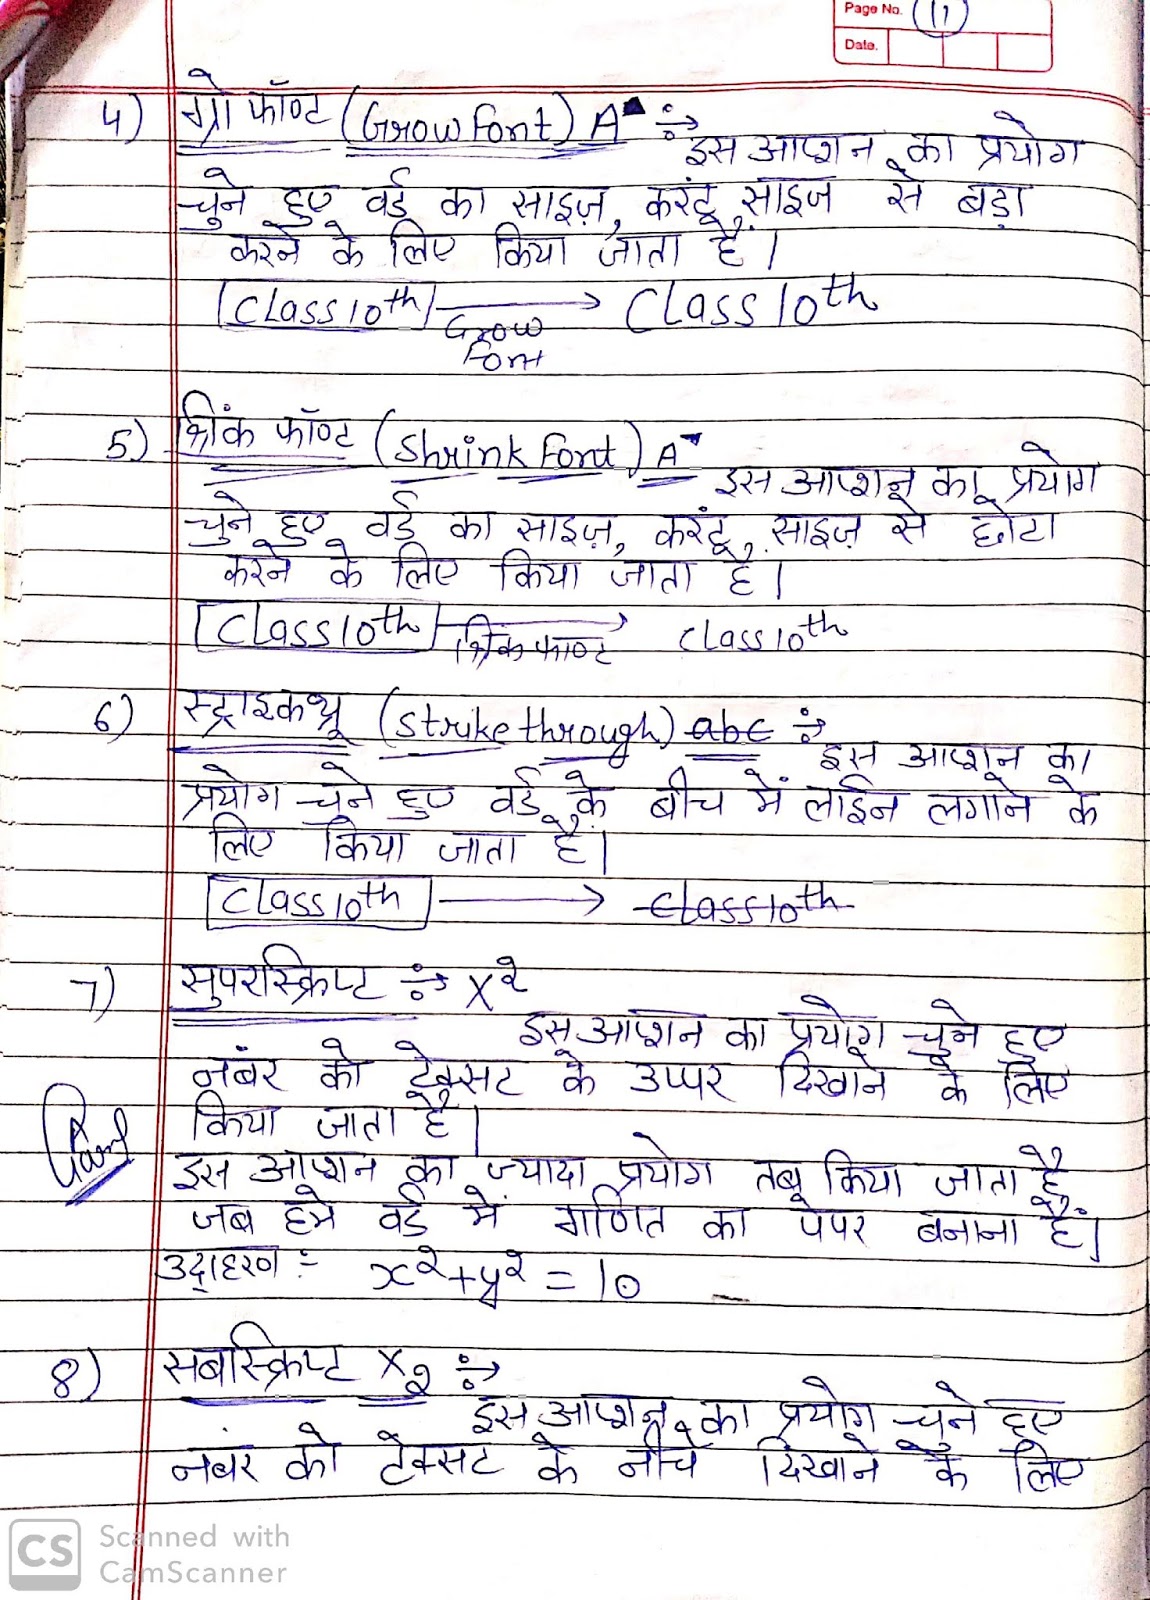 Page No. (11)
Date.
4) ग्रो फॉण्ट (Grow Font) A▲ ÷→
इस आप्शन का प्रयोग
चुने हुए वर्ड का साइज़, करंट साइज से बड़ा
करने के लिए किया जाता है।
Class 10th → Class 10th
Grow
Font
5) श्रिंक फॉण्ट (Shrink Font) A▼
इस आप्शन का प्रयोग
चुने हुए वर्ड का साइज़, करंट साइज़ से छोटा
करने के लिए किया जाता है।
Class 10th → class 10th
श्रिंक फाण्ट
6) स्ट्राइकथ्रू (Strike through) abc ÷→
इस आप्शन का
प्रयोग चुने हुए वर्ड के बीच में लाईन लगाने के
लिए किया जाता है।
Class 10th → Class 10th
7) सुपरस्क्रिप्ट ÷→ X²
इस आप्शन का प्रयोग चुने हुए
नबंर को टेक्सट के उप्पर दिखाने के लिए
किया जाता है।
इस आप्शन का ज्यादा प्रयोग तब किया जाता है,
जब हमे वर्ड में गणित का पेपर बनाना है।
उदाहरण :- x²+y² = 10
8) सबस्क्रिप्ट X₂ ÷→
इस आप्शन का प्रयोग चुने हुए
नबंर को टेक्सट के नीचे दिखाने के लिए
CS Scanned with
CamScanner